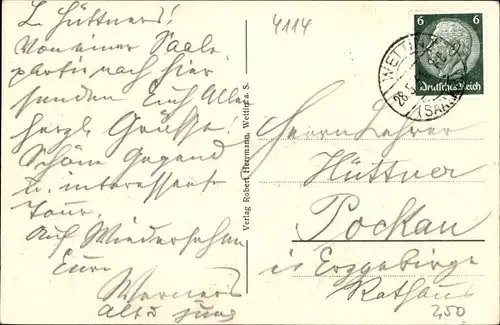 L. Hüttners!
Von einer Saale-
partie nach hier
senden Euch Allen
herzl. Grüsse!
Schöne Gegend
u. interessante
Tour.
Auf Wiedersehen
Eure
Werners
alt u. jung
4114
Verlag Robert Herrmann, Wettin a. S.
6 6
Deutsches Reich
WETTIN
28.5.
(SAALKR
Herrn Lehrer
Hüttner
Pockau
i. Erzgebirge
Rathaus
2,50